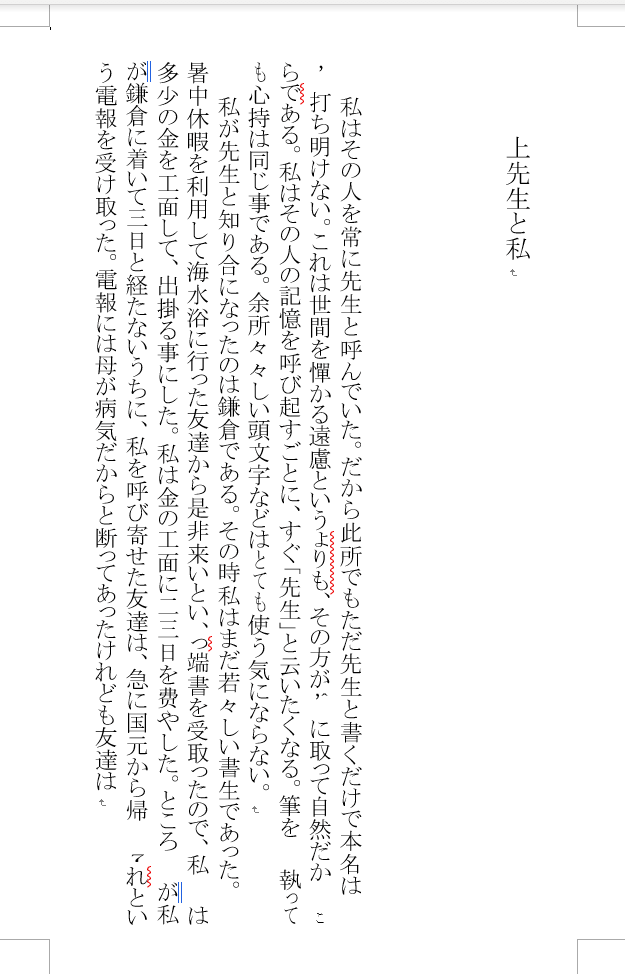 上先生と私
私はその人を常に先生と呼んでいた。だから此所でもただ先生と書くだけで本名は
，打ち明けない。これは世間を憚かる遠慮というよりも、その方が に取って自然だか こ
らである。私はその人の記憶を呼び起すごとに、すぐ「先生」と云いたくなる。筆を 執って
も心持は同じ事である。余所々々しい頭文字などはとても使う気にならない。
私が先生と知り合になったのは鎌倉である。その時私はまだ若々しい書生であった。
暑中休暇を利用して海水浴に行った友達から是非来いとい、っ端書を受取ったので、私 は
多少の金を工面して、出掛る事にした。私は金の工面に二三日を費やした。ところ が私
が鎌倉に着いて三日と経たないうちに、私を呼び寄せた友達は、急に国元から帰 れとい
う電報を受け取った。電報には母が病気だからと断ってあったけれども友達は